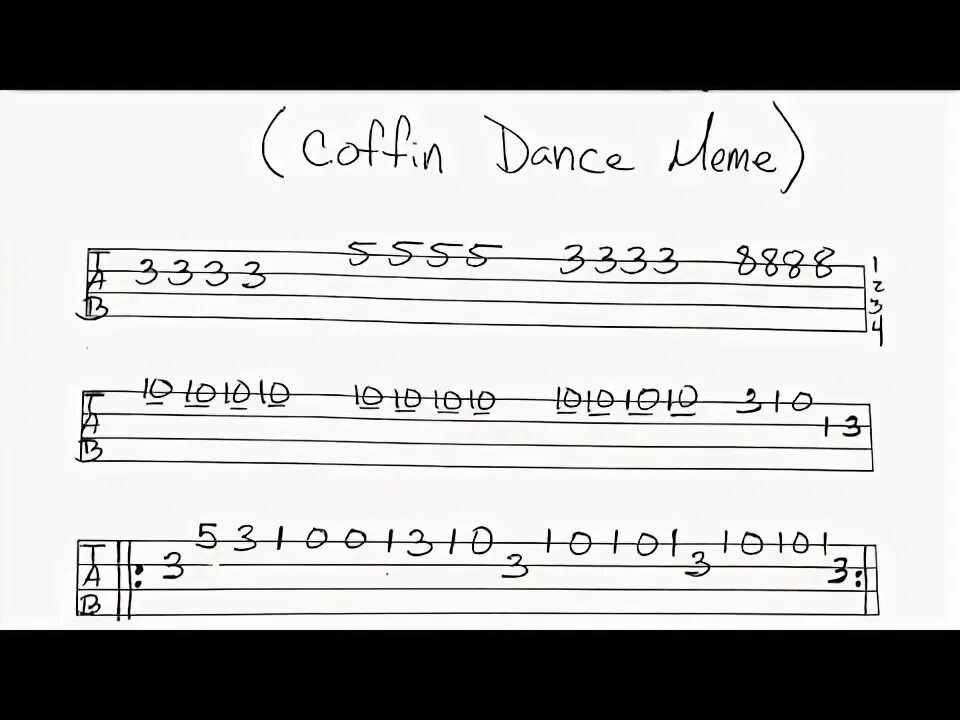 (Coffin Dance Meme)
TAB 3 3 3 3 5 5 5 5 3 3 3 3 8 8 8 8 1 2 3 4
TAB 10 10 10 10 10 10 10 10 10 10 10 10 3 1 0 1 3
TAB 3 5 3 1 0 0 1 3 1 0 3 1 0 1 0 1 3 1 0 1 0 1 3